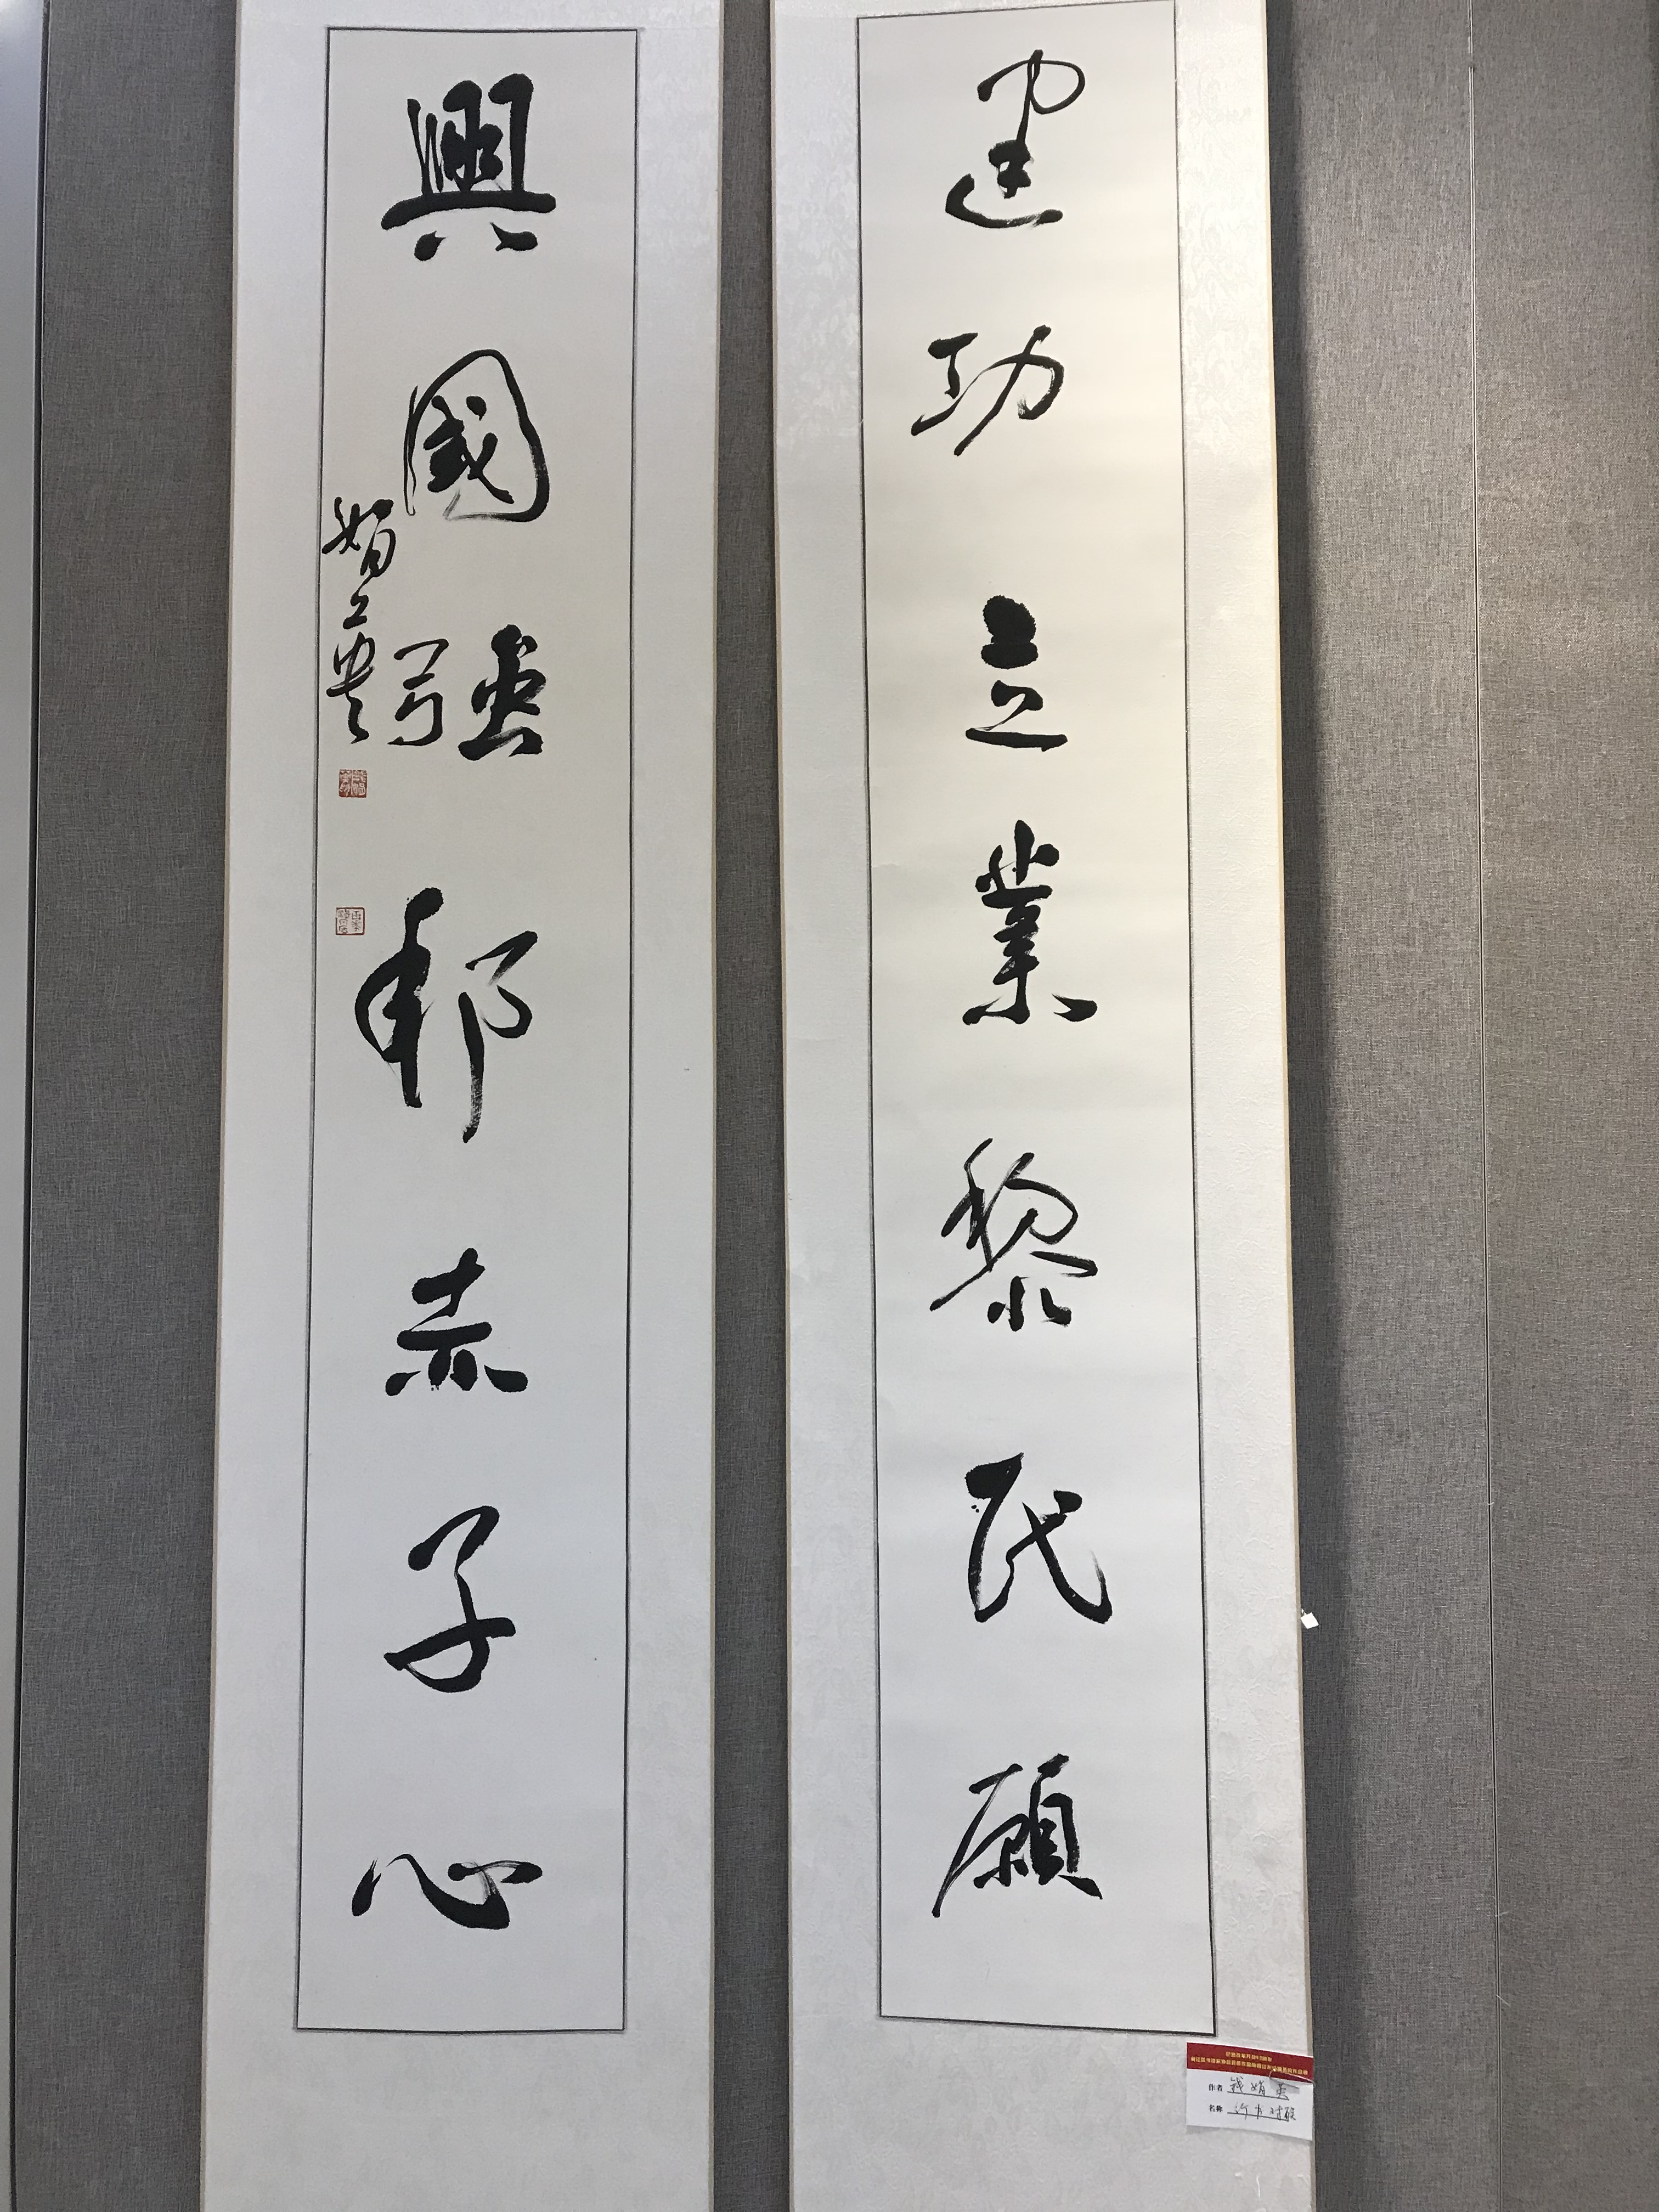 建功立業黎民願
興國強邦赤子心
作者 钱娟英
名称 行书对联